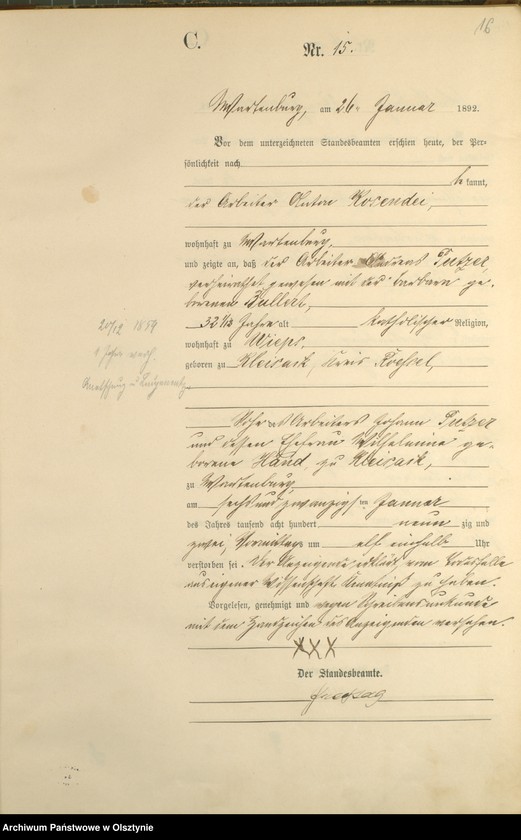 16
C.
Nr. 15.
Wartenburg, am 26. Januar 1892.
Vor dem unterzeichneten Standesbeamten erschien heute, der Per-
sönlichkeit nach
be kannt,
der Arbeiter Anton Kosendei,
wohnhaft zu Wartenburg,
und zeigte an, daß der Arbeiter Andreas Putzer,
verheirathet gewesen mit der Barbara ge-
borenen
32 1/12 Jahre alt katholischer Religion,
wohnhaft zu Wieps,
geboren zu Kleisack, Kreis Roessel,
20/12 1859
1 Jahr verh.
Sohn des Arbeiters Johann Putzer
und dessen Ehefrau Wilhelmine ge-
borene Hand zu Kleisack,
zu Wartenburg
am sechsundzwanzigsten Januar
des Jahres tausend acht hundert neun zig und
zwei, Vormittags um elf einhalb Uhr
verstorben sei. Der Anzeigende erklärt, vom Todesfalle
aus eigener Wissenschaft Kenntniß zu haben.
Vorgelesen, genehmigt und wegen Schreibensunkunde
mit dem Handzeichen des Anzeigenden versehen.
XXX
Der Standesbeamte.
Archiwum Państwowe w Olsztynie